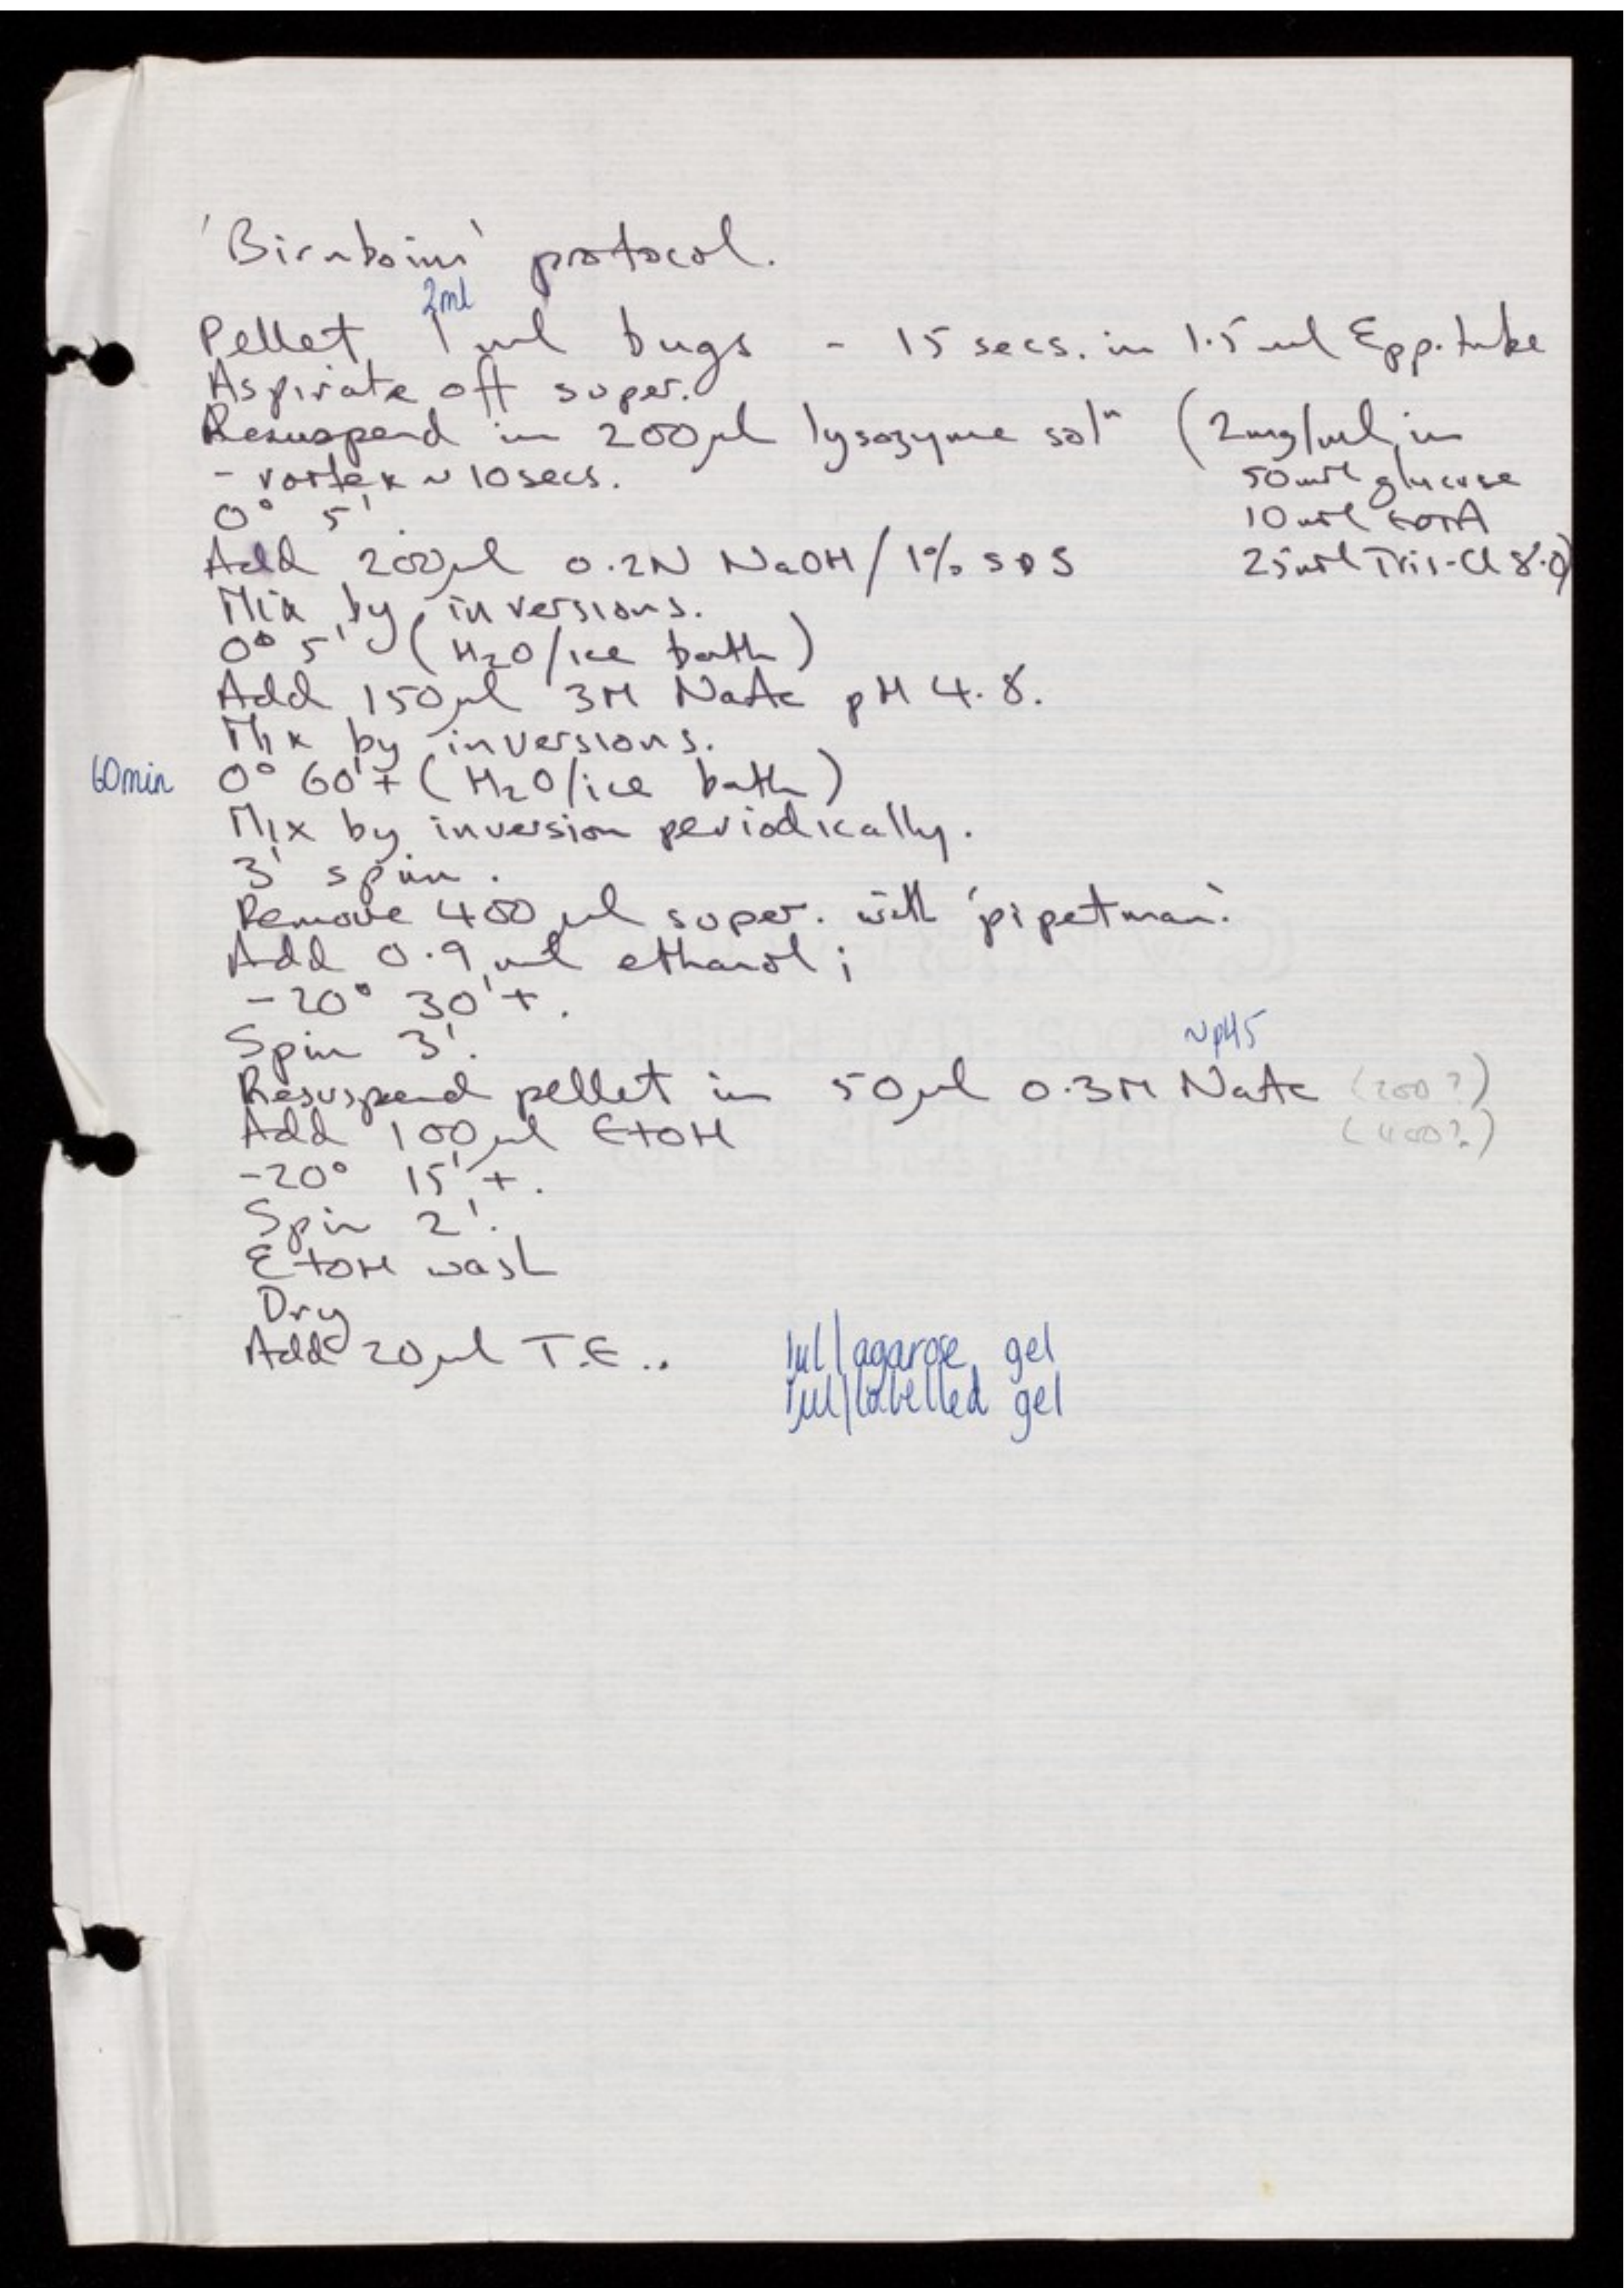 'Birnboim' protocol.
2ml
Pellet 1 ml bugs - 15 secs. in 1.5 ml Epp. tube
Aspirate off super.
Resuspend in 200µl lysozyme solⁿ (2mg/ml in
- vortex ~ 10 secs. 50mM glucose
0° 5'. 10mM EDTA
Add 200µl 0.2N NaOH/1% SDS 25mM Tris-Cl 8.0)
Mix by inversions.
0° 5' (H₂O/ice bath)
Add 150µl 3M NaAc pH 4.8.
Mix by inversions.
60min 0° 60'+ (H₂O/ice bath)
Mix by inversion periodically.
3' spin.
Remove 400µl super. with 'pipetman'.
Add 0.9 ml ethanol;
-20° 30'+.
Spin 3'.
~pH5
Resuspend pellet in 50µl 0.3M NaAc (200?)
Add 100µl EtOH (400?)
-20° 15'+.
Spin 2'.
EtOH wash
Dry
Add 20µl T.E.. 1µl/agarose gel
1µl/labelled gel